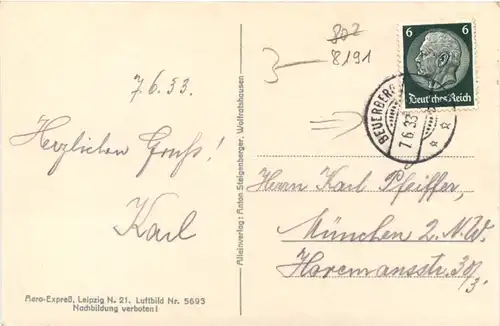 802
8191
7.6.33.
Herzlichen Gruß!
Karl
Aero-Expreß, Leipzig N. 21. Luftbild Nr. 5693
Nachbildung verboten!
Alleinverlag: Anton Steigenberger, Wolfratshausen
6 6
Deutsches Reich
BEUERBERG
7.6.33
Herrn Karl Pfeiffer,
München 2. N.W.
30/3.